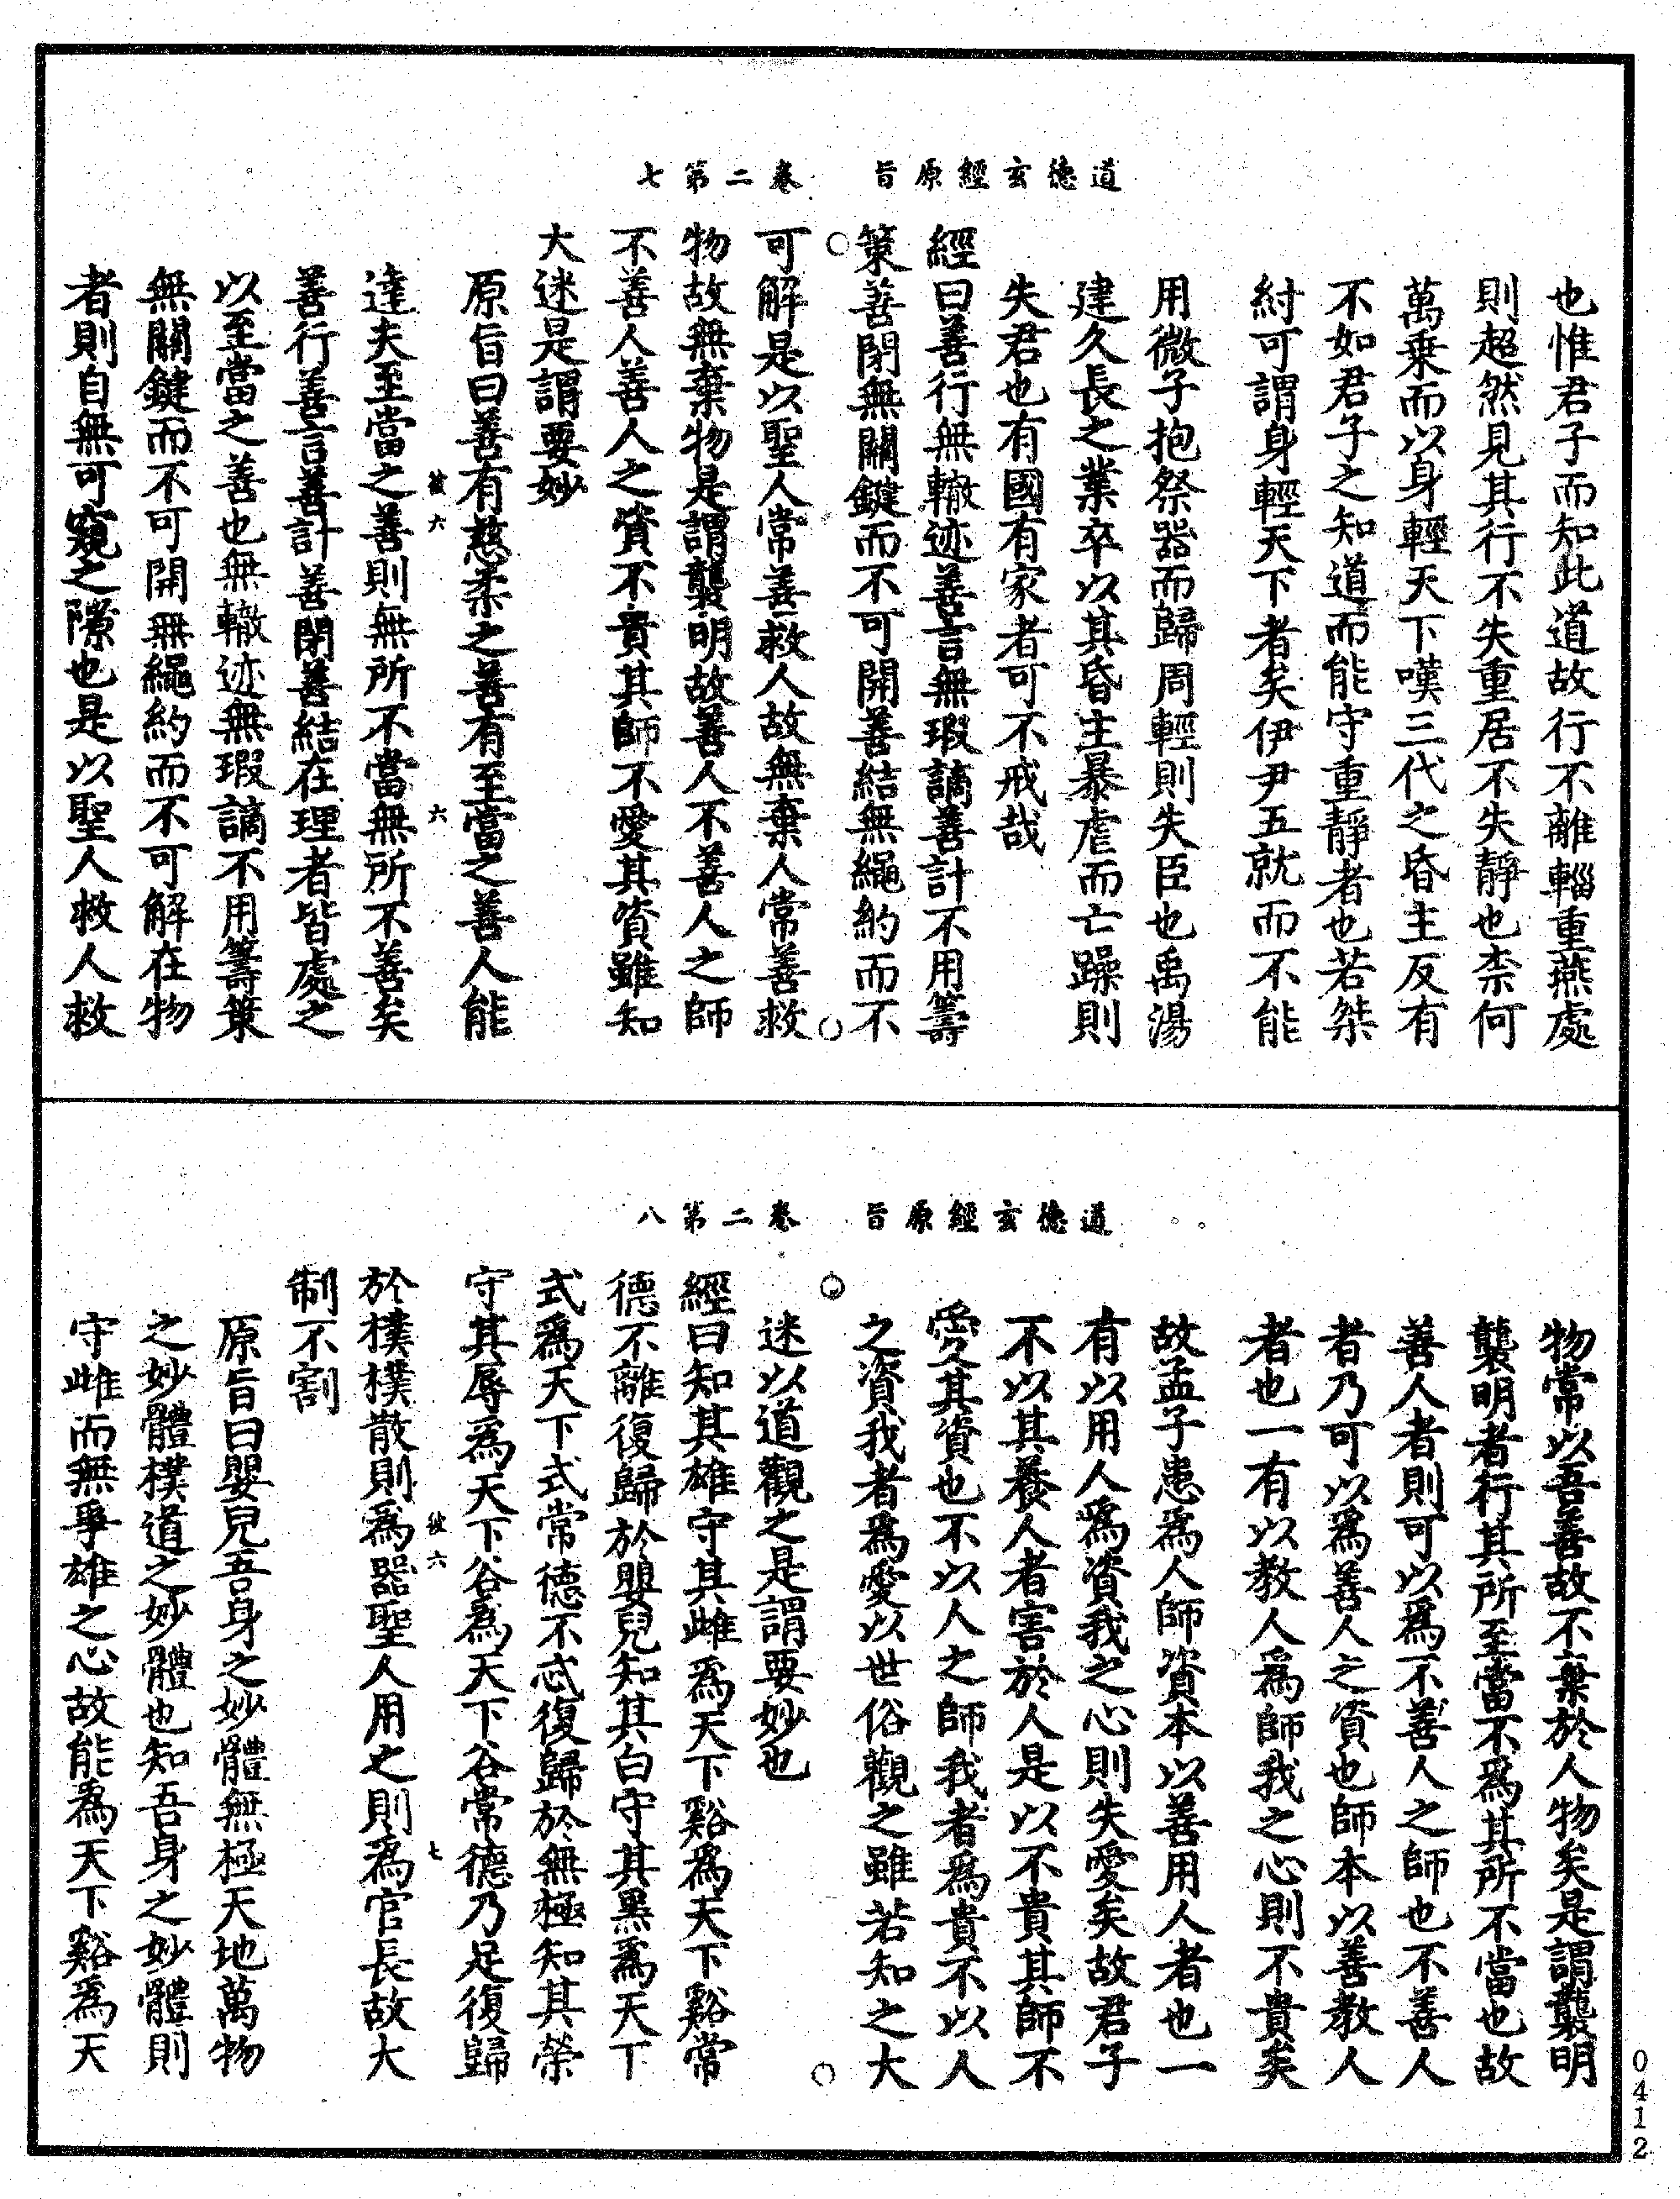 道德玄經原旨　卷二第七
也惟君子而知此道故行不離輜重燕處
則超然見其行不失重居不失靜也柰何
萬乗而以身輕天下嘆三代之昏主反有
不如君子之知道而能守重靜者也若桀
紂可謂身輕天下者矣伊尹五就而不能
用微子抱祭器而歸周輕則失臣也禹湯
建久長之業卒以其昏主暴虐而亡躁則
失君也有國有家者可不戒哉
經曰善行無轍迹善言無瑕謫善計不用籌
策善閉無關鍵而不可開善結無繩約而不
可解是以聖人常善救人故無棄人常善救
物故無棄物是謂襲明故善人不善人之師
不善人善人之資不貴其師不愛其資雖知
大迷是謂要妙
原旨曰善有慈柔之善有至當之善人能
彼六　六
達夫至當之善則無所不當無所不善矣
善行善言善計善閉善結在理者皆處之
以至當之善也無轍迹無瑕謫不用籌策
無關鍵而不可開無繩約而不可解在物
者則自無可窺之隙也是以聖人救人救
道德玄經原旨　卷二第八
物常以吾善故不棄於人物矣是謂襲明
襲明者行其所至當不爲其所不當也故
善人者則可以爲不善人之師也不善人
者乃可以爲善人之資也師本以善教人
者也一有以教人爲師我之心則不貴矣
故孟子患爲人師資本以善用人者也一
有以用人爲資我之心則失愛矣故君子
不以其養人者害於人是以不貴其師不
愛其資也不以人之師我者爲貴不以人
之資我者爲愛以世俗觀之雖若知之大
迷以道觀之是謂要妙也
經曰知其雄守其雌爲天下谿爲天下谿常
德不離復歸於嬰兒知其白守其黑爲天下
式爲天下式常德不忒復歸於無極知其榮
守其辱爲天下谷爲天下谷常德乃足復歸
彼六　七
於樸樸散則爲器聖人用之則爲官長故大
制不割
原旨曰嬰兒吾身之妙體無極天地萬物
之妙體樸道之妙體也知吾身之妙體則
守雌而無爭雄之心故能爲天下谿爲天
0412